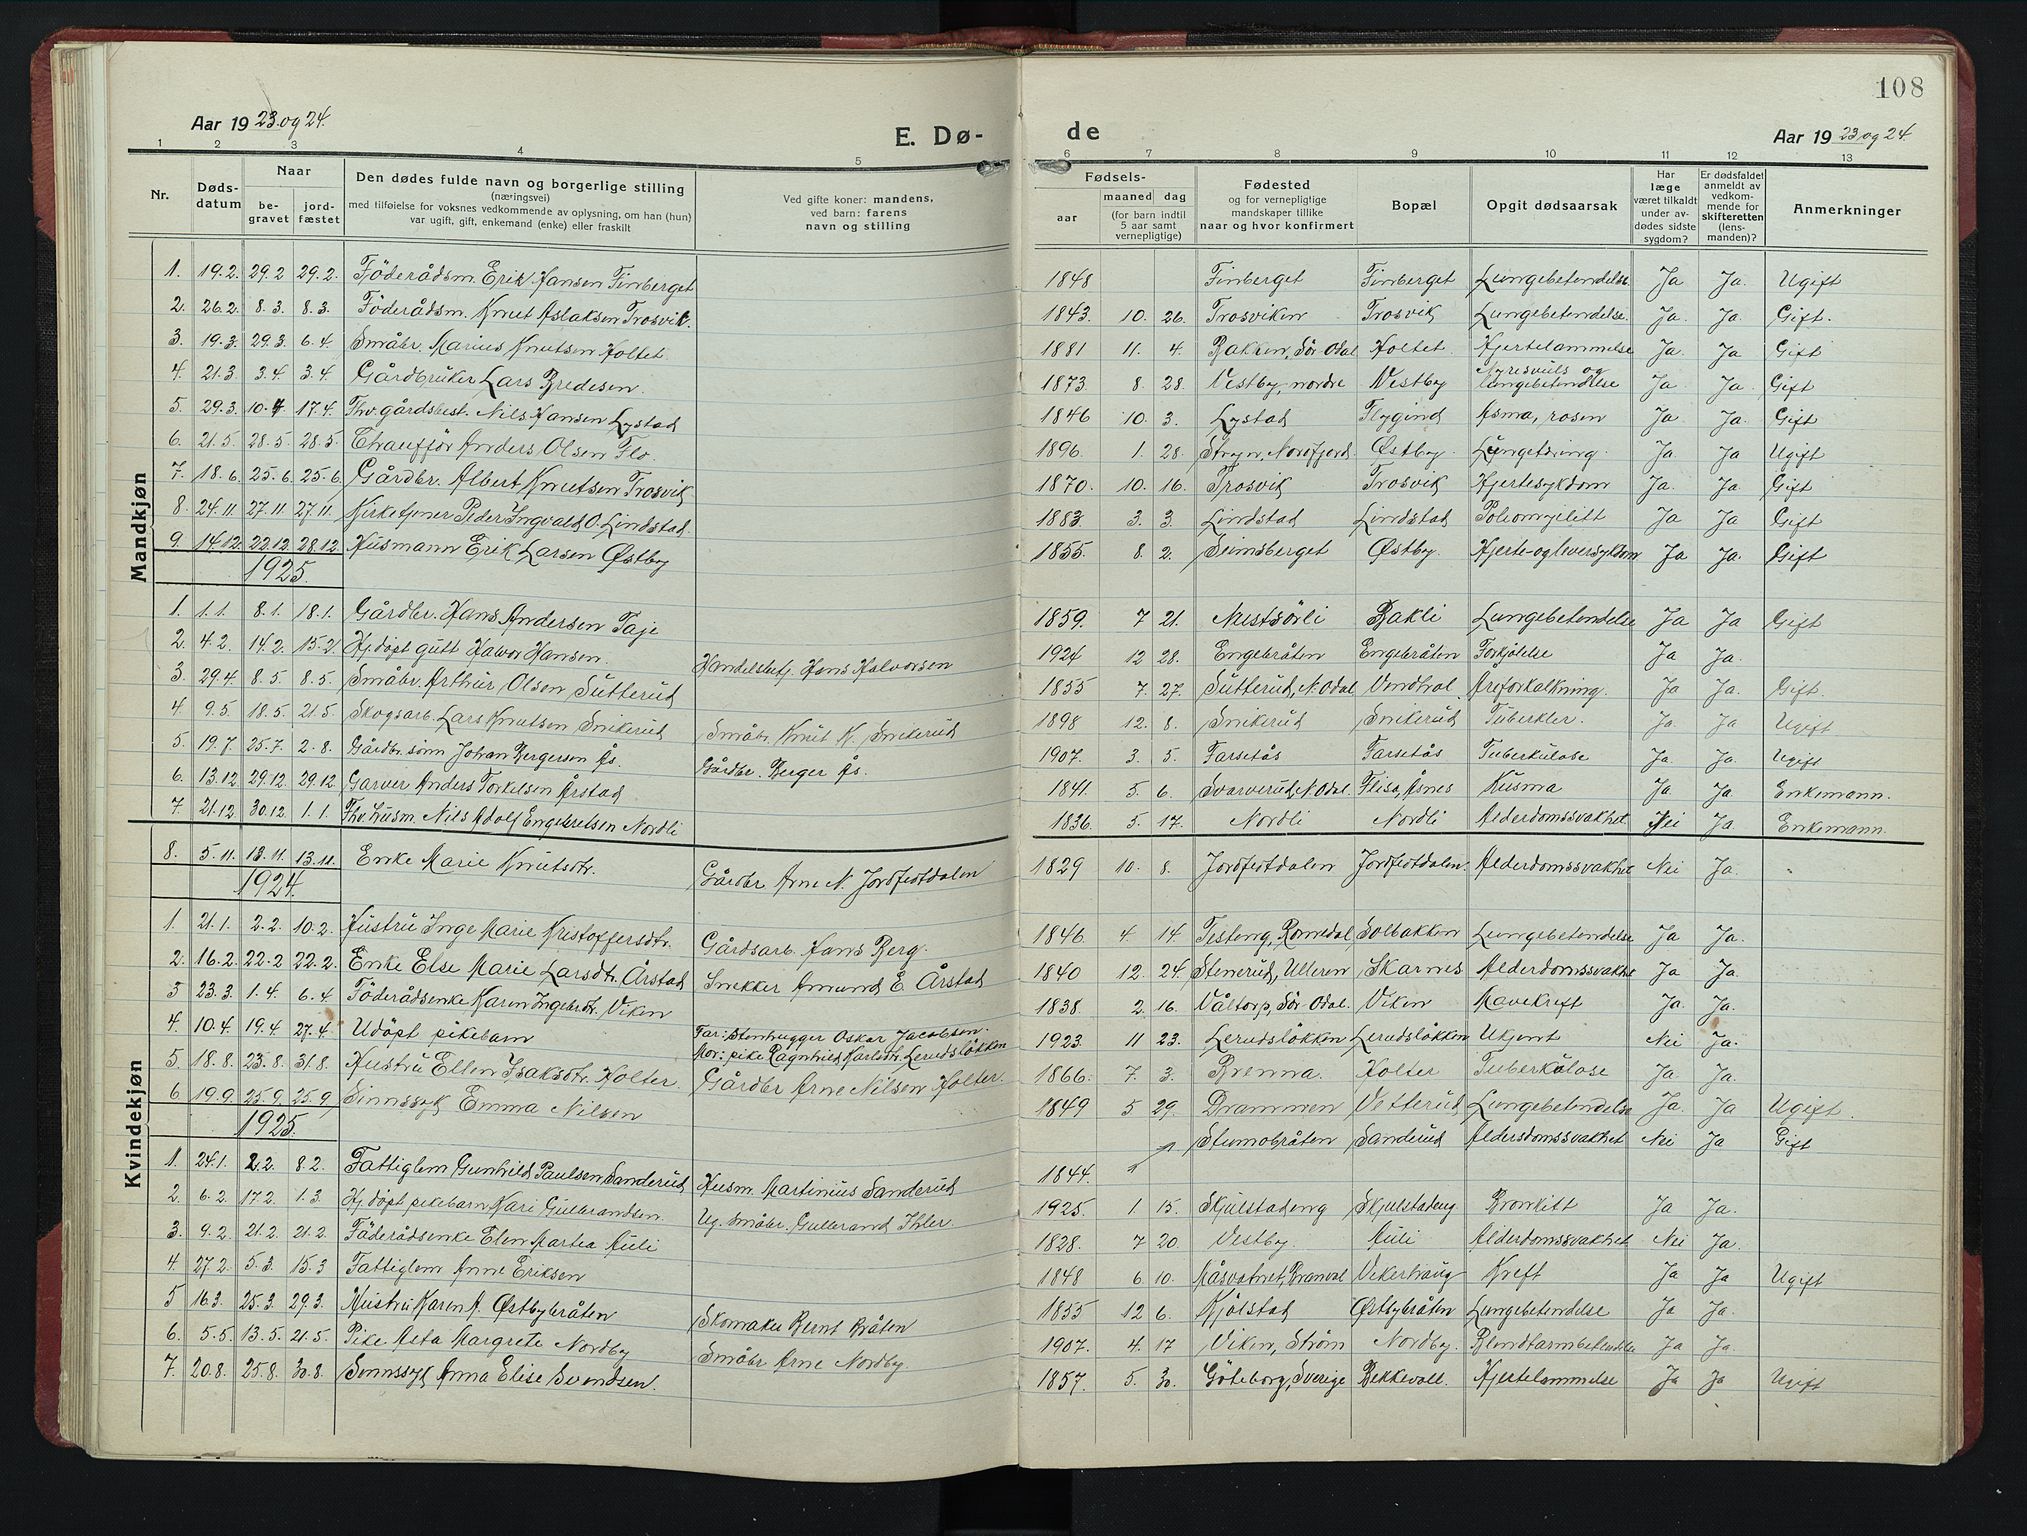 108
Aar 19 23 og 24.
E. Dø-
de
Aar 19 23 og 24.
1 2 3 4 5 6 7 8 9 10 11 12 13
Nr.
Døds-
datum
Naar
be-
gravet
jord-
fæstet
Den dødes fulde navn og borgerlige stilling
(næringsvei)
med tilføielse for voksnes vedkommende av oplysning, om han (hun)
var ugift, gift, enkemand (enke) eller fraskilt
Ved gifte koner: mandens,
ved barn: farens
navn og stilling
Fødsels-
aar
maaned dag
(for barn indtil
5 aar samt
vernepligtige)
Fødested
og for vernepligtige
mandskaper tillike
naar og hvor konfirmert
Bopæl
Opgit dødsaarsak
Har
læge
været tilkaldt
under av-
dødes sidste
sygdom?
Er dødsfaldet
anmeldt av
vedkom-
mende for
skifteretten
(lens-
manden)?
Anmerkninger
Mandkjøn
1. 19.2. 29.2 29.2. Föderådsm. Erik Hansen Finberget 1848 Finberget Finberget Lungebetendelse Ja Ja. Ugift
2. 26.2. 8.3. 8.3. Föderådsm. Knut Aslaksen Trosvik. 1843. 10. 26. Trosviken Trosvik Lungebetendelse. Ja. Ja Gift.
3. 19.3. 29.3 6.4. Småbr. Marius Knutsen Holtet. 1881 11. 4. Bakken, Sör Odal Holtet Hjertelammelse Ja Ja Gift
4. 21.3. 3.4. 3.4. Gårdbruker Lars Bredesen 1873. 8. 28. Vestby, nordre Vestby og lungebetendelse Ja. Ja Gift
5. 29.3. 10.4 17.4. Fhv. gårdsbest. Nils Hansen Lystad 1846 10. 3. Lystad Flygind Asma, rosen Ja Ja. Gift
6. 21.5. 28.5. 28.5. Chaufför Anders Olsen Flo. 1896. 1. 28. Stryn, Nordfjord Østby Lungetæring. Ja Ja. Ugift
7. 18.6. 25.6. 25.6. Gårdbr. Albert Knutsen Trosvik 1870. 10. 16. Trosvik Trosvik Hjertesykdom Ja. Ja Gift
8. 24.11 27.11 27.11. Kirketjener Peder Ingvald O. Lindstad. 1883. 3. 3. Lindstad Lindstad Poliomyilitt Ja Ja Gift
9. 14.12. 22.12. 28.12. Husmann Erik Larsen Østby 1855. 8. 2. Seimsberget Østby. Hjerte- og leversykdom Ja Ja. Gift
1925.
1. 1.1. 8.1. 18.1. Gårdbr. Hans Andersen Taje 1859. 7 21. Nestsörli Bakli Lungebetendelse Ja Ja Gift
2. 4.2. 14.2. 15.2. Hj. döpt gutt Halvor Hansen. Handelsbetj. Hans Halvorsen 1924 12 28. Engebråten Engebråten Forkjölelse Ja Ja.
3. 29.4. 8.5. 8.5. Småbr. Arthur Olsen Sutterud 1855 7. 27. Sutterud, N. Odal Vendtral Areforkalkning. Ja Ja Gift.
4. 9.5. 18.5. 21.5. Skogsarb. Lars Knutsen Snikerud Småbr. Knut K. Snikerud 1898 12. 8. Snikerud Snikerud Tuberkler. Ja. Ja Ugift
5. 19.7. 25.7. 2.8. Gårdbr. sönn Johan Bergersen Ås. Gårdbr. Berger Ås. 1907. 3. 5. Farsetås Farsetås Tuberkulose Ja Ja. Ugift
6. 13.12 29.12. 29.12 Garver Anders Torkelsen Årstad 1841. 5. 6. Svarverud, N. Odal. Flisa, Åsnes Kusma Ja Ja. Enkemann.
7. 21.12. 30.12 1.1. Fhv. husm. Nils Adolf Engebretsen Nordli 1836. 5. 17. Nordli Nordli Alderdomssvakhet Nei Ja Enkemann
Kvindekjøn
8. 5.11. 13.11. 13.11. Enke Marie Knutsdtr. Gårdbr. Arne N. Jordfestdalen 1829 10. 8. Jordfestdalen Jordfestdalen. Alderdomssvakhet Nei Ja.
1924.
1. 21.1. 2.2. 10.2. Hustru Inge Marie Kristoffersdtr. Gårdsarb. Hans Berg. 1846 4. 14. Testeng, Romedal Solbakken Lungebetendelse Ja Ja.
2. 16.2. 22.2 22.2. Enke Else Marie Larsdtr. Årstad Snekker Amund E. Årstad 1840 12. 24. Stenerud, Ulleren Skarnes Alderdomssvakhet Ja Ja.
3 23.3. 1.4. 6.4. Föderådsenke Karen Ingebrdtr. Viken 1838. 2. 16. Våltorp, Sör Odal. Viken Mavekreft Ja. Ja.
4. 10.4. 19.4 27.4. Udöpt pikebarn Far: Stenhugger Oskar Jacobsen.
Mor: pike Ragnhild Karlsdtr. Lerudslökken 1923. 11 23. Lerudslökken Lerudslökken Ukjent Nei Ja.
5. 18.8. 23.8. 31.8. Hustru Ellen Isaksdtr. Holter Gårdbr. Arne Nilsen Holter. 1866. 7. 3. Brenna. Holter Tuberkulose Ja. Ja.
6. 19.9. 25.9. 25.9. Sinnssyk Emma Nilsen 1849 5 29. Drammen Vetterud Lungebetendelse Ja. Ja Ugift.
1925.
1. 24.1. 2.2. 8.2. Fattiglem Gunhild Paulsen Sanderud Husm. Martinius Sanderud 1844. Stumobråten Sanderud Aldersdomssvakhet Nei Ja Gift
2. 6.2. 17.2. 1.3. Hj. döpt pikebarn Kari Gulbrandsen. Ug. småbr. Gulbrand Ihler. 1925. 1. 15. Skjulstadeng Skjulstadeng Bronkitt Ja Ja.
3. 9.2. 21.2. 21.2. Föderådsenke Elen Martea Auli 1828. 7 20. Vestby. Auli Alderdomssvakhet Nei Ja.
4. 27.2. 5.3. 15.3 Fattiglem Anne Eriksen 1848 6 10. Måsvatnet, Branval Vekerhaug Kreft Ja Ja Ugift
5 16.3. 25.3. 29.3. Hustru Karen A. Østbybråten Skomaker Bernt Bråten 1855 12 6. Kjölstad Østbybråten Lungebetendelse Ja Ja.
6. 5.5. 13.5. 21.5. Pike Asta Margrete Nordby Småbr. Arne Nordby. 1907. 4. 17 Viken, Ström Nordby. Blindtarmbetendelse Ja Ja.
7. 20.8. 25.8. 30.8. Sinnssyk Anna Elise Svendsen. 1857. 5. 30. Göteborg, Sverige Bekkevoll. Hjertelammelse Ja Ja Ugift